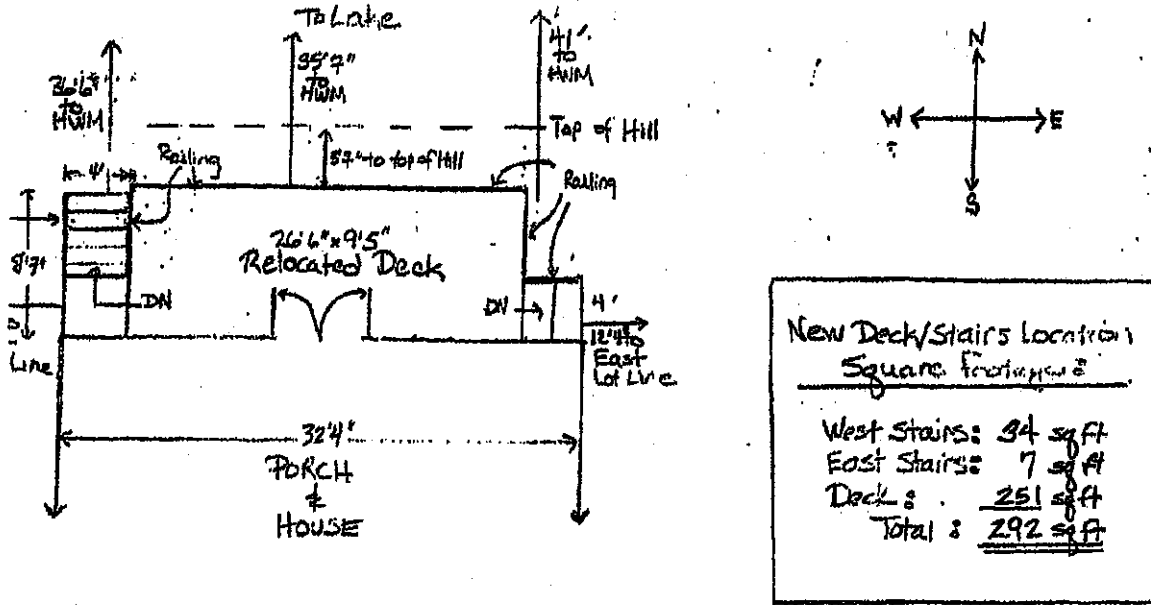 To Lake
36'6"
to
HWM
35'7"
to
HWM
41'
to
HWM
Top of Hill
to top of Hill
4'
Railing
Railing
26'6" x 9'5"
Relocated Deck
DN
DN
4'
12'4" to
East
Lot Line
Line
32'4"
PORCH
&
HOUSE
N
W
E
S
New Deck/Stairs Location
Square Footage:
West Stairs: 34 sq ft
East Stairs: 7 sq ft
Deck: 251 sq ft
Total: 292 sq ft